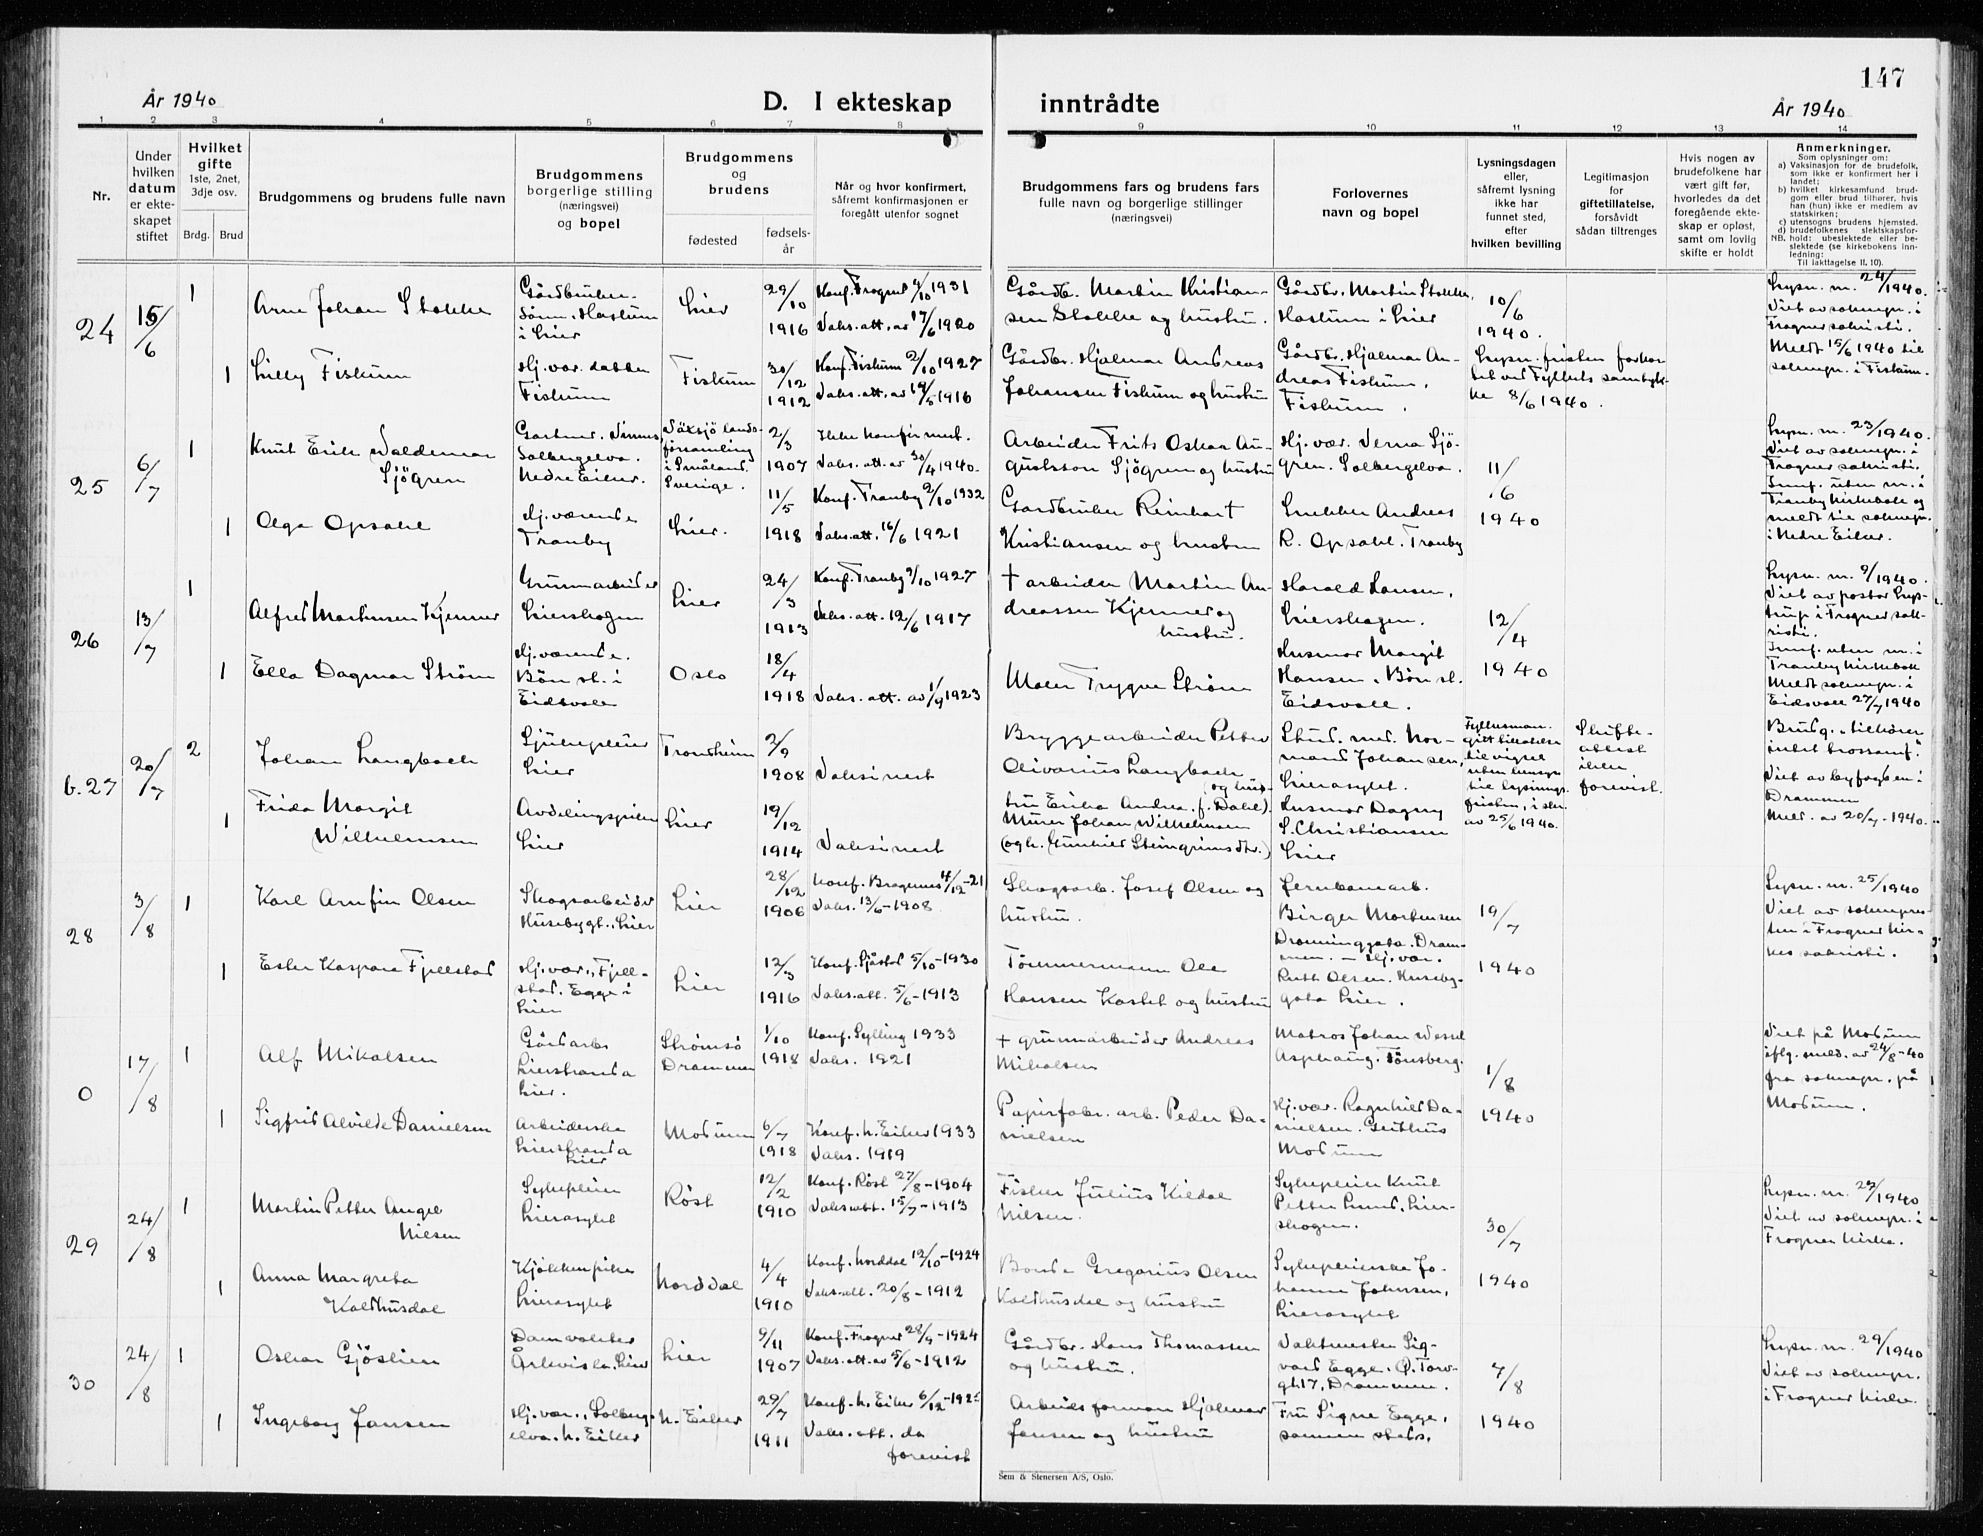 147
År 1940
D. I ekteskap
inntrådte
År 1940
1
2
3
4
5
6
7
8
9
10
11
12
13
14
Nr.
Under
hvilken
datum
er ekte-
skapet
stiftet
Hvilket
gifte
1ste, 2net,
3dje osv.
Brdg.
Brud
Brudgommens og brudens fulle navn
Brudgommens
borgerlige stilling
(næringsvei)
og bopel
Brudgommens
og
brudens
fødested
fødsels-
år
Når og hvor konfirmert,
såfremt konfirmasjonen er
foregått utenfor sognet
Brudgommens fars og brudens fars
fulle navn og borgerlige stillinger
(næringsvei)
Forlovernes
navn og bopel
Lysningsdagen
eller,
såfremt lysning
ikke har
funnet sted,
efter
hvilken bevilling
Legitimasjon
for
giftetillatelse,
forsåvidt
sådan tiltrenges
Hvis nogen av
brudefolkene har
vært gift før,
hvorledes da det
foregående ekte-
skap er opløst,
samt om lovlig
skifte er holdt
Anmerkninger.
Som oplysninger om:
a) Vaksinasjon for de brudefolk,
som ikke er konfirmert her i
landet;
b) hvilket kirkesamfund brud-
gom eller brud tilhører, hvis
han (hun) ikke er medlem av
statskirken;
c) utensogns brudens hjemsted.
d) brudefolkenes slektskapsfor-
NB. hold: ubeslektede eller be-
slektede (se kirkebokens inn-
ledning:
Til iakttagelse II. 10).
24
15/6
1
Arne Johan Stokke
Gårdbruker-
sønn. Hastum
i Lier
Lier
29/10
1916
Konf. Frogner 4/10 1931
Vaks. att. av 17/6 1920
Gårdb. Martin Kristian-
sen Stokke og hustru.
Gårdbr. Martin Stokke,
Hastum i Lier
10/6
1940.
Lysn. m. 24/1940.
Viet av soknepr. i
Frogner sakristi.
1
Lilly Fiskum
Hj. vær. datter
Fiskum
Fiskum
30/12
1912
Konf. Fiskum 2/10 1927
Vaks. att. av 19/5 1916
Gårdbr. Hjalmar Andreas
Johansen Fiskum og hustru
Gårdbr. Hjalmar An-
dreas Fiskum,
Fiskum.
Lysn. fristen forkor-
tet ved Fylkets samtyk-
ke 8/6 1940.
Meldt 15/6 1940 til
soknepr. i Fiskum.
25
6/7
1
Knut Erik Valdemar
Sjögren
Gartner.
Solbergelva.
Nedre Eiker.
Växsjö lands-
församling
i Småland.
Sverige.
2/3
1907
Ikke konfirmert.
Vaks. att. av 30/4 1940.
Arbeider Frits Oskar Au-
gustsson Sjögren og hustru
Hj. vær. Verna Sjö-
gren. Solbergelva.
11/6
1940
Lysn. m. 23/1940.
Viet av soknepr. i
Frogner sakristi.
Innf. uten nr. i
Tranby kirkebok og
meldt til soknepr.
i Nedre Eiker.
1
Olga Opsahl
Hj. værende
Tranby
Lier.
11/5
1918
Konf. Tranby 2/10 1932
Vaks. att. 16/6 1921
Gardbruker Reinhart
Kristiansen og hustru
Snekker Andreas
R. Opsahl. Tranby
26
13/7
1
Alfred Martinsen Kjenner
Grunnarbeider
Lierskogen
Lier
24/3
1913
Konf. Tranby 9/10 1927
Vaks. att. 12/6 1917
+ arbeider Martin An-
dreassen Kjenner og
hustru.
Harald Larsen,
Lierskogen.
12/4
1940
Lysn. m. 9/1940.
Viet av pastor Lys-
trup i Frogner sak-
risti.
Innf. uten nr. i
Tranby kirkebok
Meldt soknepr. i
Eidsvoll 27/7 1940
1
Ella Dagmar Strøm
Hj. værende.
Bøn st. i
Eidsvoll
Oslo
18/4
1918
Vaks. att. av 1/9 1923
Maler Trygve Strøm
Husmor Margit
Hansen. Bøn st.
Eidsvoll.
b. 27
20/7
2
Johan Langbach
Sjukepleier
Lier
Trondheim
2/9
1908
Vaksinert
Bryggearbeider Petter
Olivarius Langbach
og hus-
tru Erika Andrea (f. Dahl).
Stud. med. Nor-
mand Johansen,
Lierasylet.
Fylkesmann-
gitt tillatelse
til vigsel
uten hensyn
til lysnings-
fristen, i skr.
av 25/6 1940.
Skifte-
attest
ikke
forevist.
Brudg. tilhører
intet trossamf.
Viet av byfogden i
Drammen
Meld. av 20/7-1940.
1
Frida Margit
Wilhelmsen
Avdelingspike
Lier
Lier
19/12
1914
Vaksinert
Murer Johan Wilhelmsen
(og h. Gunhild Steingrimsdtr.)
Husmor Dagny
S. Christiansen
Lier
28
3/8
1
Karl Arnfin Olsen
Skogsarbeider
Husebygt., Lier
Lier
28/12
1906
Konf. Bragernes 4/12-21
Vaks. 13/6-1908.
Skogsarb. Josef Olsen og
hustru.
Jernbanearb.
Birger Mortensen
Dronninggata. Dram-
men. – Hj. vær.
Ruth Olsen. Huseby-
gata Lier.
19/7
1940
Lysn. m. 25/1940
Viet av soknepres-
ten i Frogner kir-
kes sakristi.
1
Ester Kaspara Fjellstad
Hj. vær., Fjell-
stad. Egge i
Lier
Lier
12/3
1916
Konf. Sjåstad 5/10-1930
Vaks. att. 5/6-1913
Tømmermann Ole
Hansen Kastet og hustru
0
17/8
1
Alf Mikalsen
Gårdarb.
Lierstranda
Lier.
Strømsø
Drammen
1/10
1918
Konf. Sylling 1933
Vaks. 1921
+ grunnarbeider Andreas
Mikalsen
Matros Johan Wessel
Asphaug. Tønsberg.
1/8
1940
Viet på Modum
iflg. meld. av 24/8-40
fra soknepr. på
Modum.
1
Sigfrid Alvilde Danielsen
Arbeiderske
Lierstranda
Lier
Modum
6/7
1918
Konf. N. Eiker 1933
Vaks. 1919
Papirfabr. arb. Peder Da-
nielsen
Hj. vær. Ragnhild Da-
nielsen. Geithus
Modum
29
24/8
1
Martin Petter Angel
Nilsen
Sykepleier
Lierasylet
Røst
12/2
1910
Konf. Røst 27/8-1904
Vaks. att. 15/7-1913
Fisker Julius Kildal
Nilsen.
Sykepleier Knut
Petter Lund, Lier-
skogen.
30/7
1940
Lysn. m. 27/1940
Viet av soknepr. i
Frogner kirke.
1
Anna Margreta
Kaldhusdal
Kjøkkenpike
Lierasylet
Norddal
4/4
1910
Konf. Norddal 12/10-1924
Vaks. att. 20/8-1912
Bonde Gregorius Olsen
Kaldhusdal og hustru
Sykepleierske Jo-
hanna Johnsen,
Lierasylet
30
24/8
1
Oskar Gjøslien
Damvokter
Årkvisla, Lier
Lier
9/11
1907
Konf. Frogner 28/9-1924
Vaks. att. av 5/6-1912
Gårdbr. Hans Thomassen
og hustru.
Vaktmester Sig-
vard Egge. Ø. Torv-
gt. 17, Drammen.
7/8
1940
Lysn. m. 29/1940
Viet av soknepr.
i Frogner kirke.
1
Ingeborg Jansen
Hj. vær., Solberg-
elva. N. Eiker
N. Eiker
29/7
1911
Konf. N. Eiker 6/12-192
Vaks. att. da
forevist
Arbeidsformann Hjalmar
Jansen og hustru
Fru Signe Egge,
samme steds.
Sem & Stenersen A/S, Oslo.